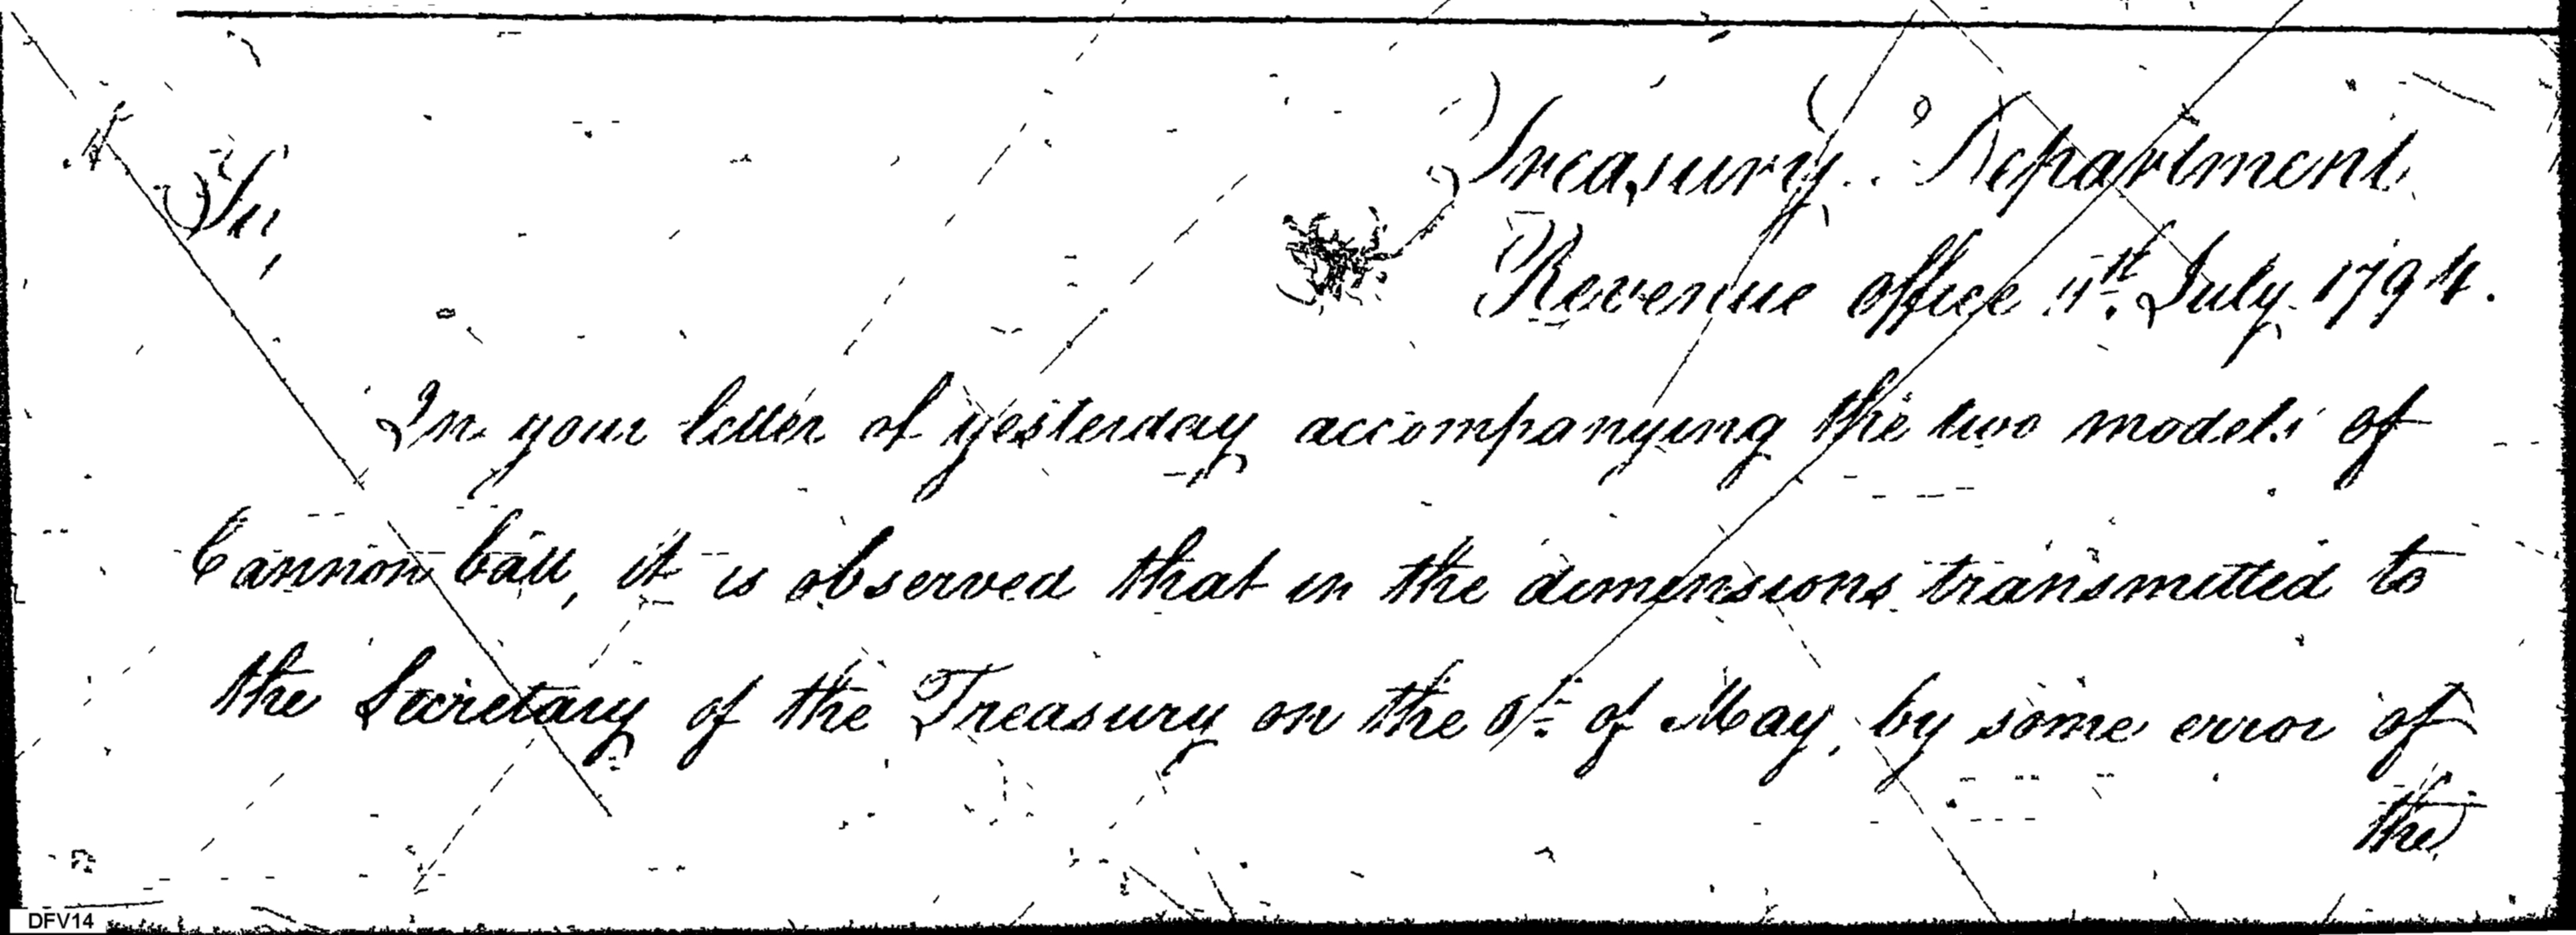 Treasury Department
Sir,
Revenue office 11th July 1794.
In your letter of yesterday accompanying the two models of
Cannon ball, it is observed that in the dimensions transmitted to
the Secretary of the Treasury on the of May, by some error of
the
DFV14